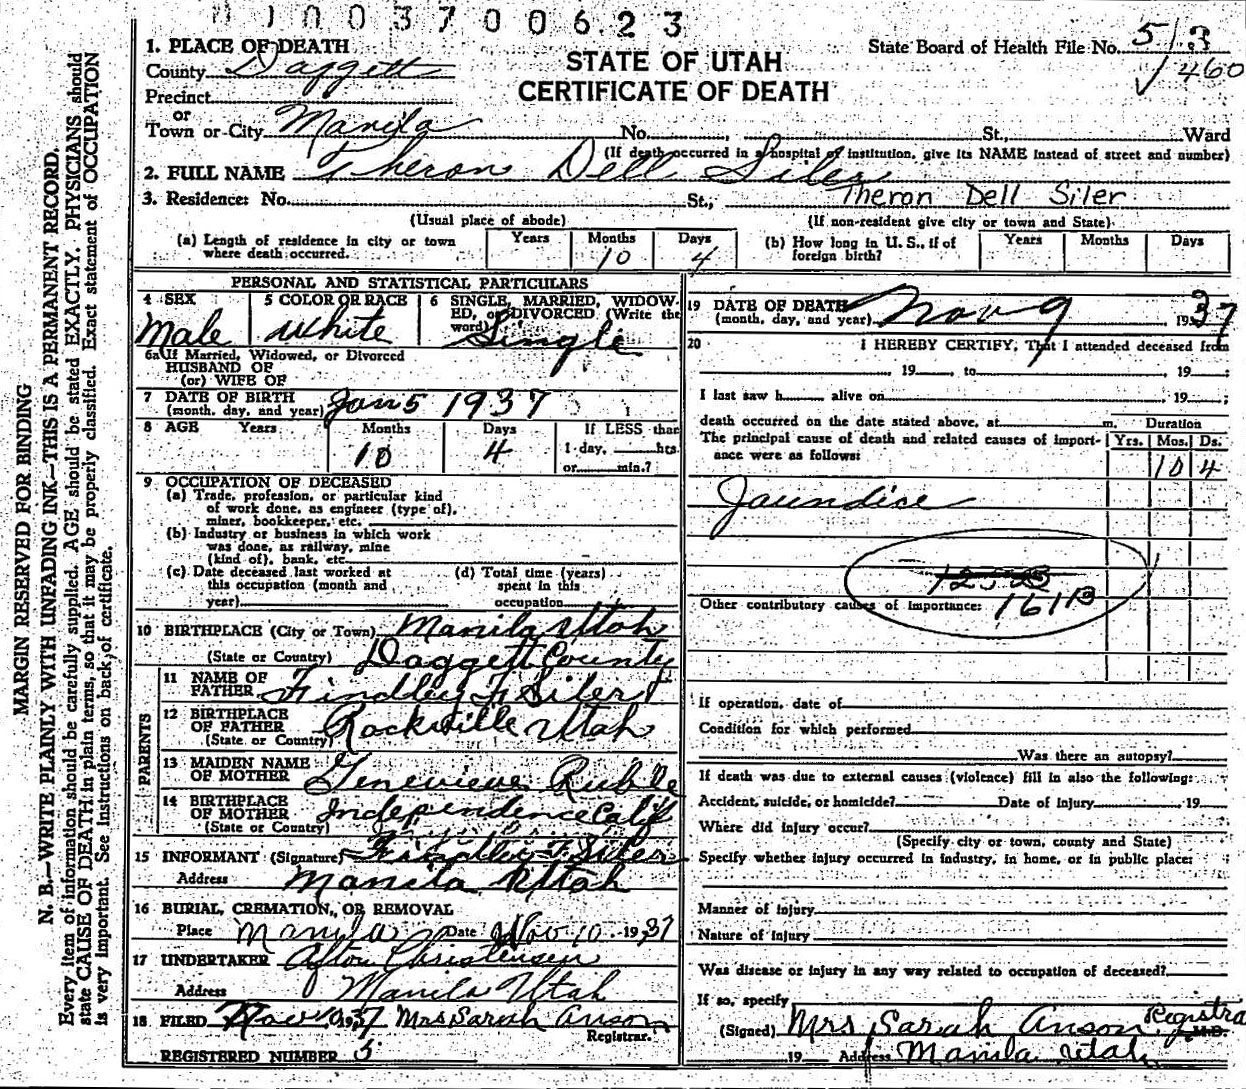 0100370062 3
State Board of Health File No. 513
√ 460
STATE OF UTAH
CERTIFICATE OF DEATH
1. PLACE OF DEATH
County Daggett
Precinct
or
Town or City Manila No. , St. Ward
(If death occurred in a hospital of institution, give its NAME instead of street and number)
2. FULL NAME Theron Dell Siler
Theron Dell Siler
3. Residence: No. St.,
(Usual place of abode) (If non-resident give city or town and State)
(a) Length of residence in city or town where death occurred. Years Months 10 Days 4
(b) How long in U. S., if of foreign birth? Years Months Days
PERSONAL AND STATISTICAL PARTICULARS
4 SEX Male
5 COLOR OR RACE White
6 SINGLE, MARRIED, WIDOWED, or DIVORCED (Write the word) Single
6a If Married, Widowed, or Divorced
HUSBAND OF
(or) WIFE OF
7 DATE OF BIRTH
(month, day, and year) Jan 5 1937
8 AGE Years Months 10 Days 4 If LESS than
1 day, hrs
or min.?
9 OCCUPATION OF DECEASED
(a) Trade, profession, or particular kind
of work done, as engineer (type of),
miner, bookkeeper, etc.
(b) Industry or business in which work
was done, as railway, mine
(kind of), bank, etc.
(c) Date deceased last worked at
this occupation (month and
year)
(d) Total time (years)
spent in this
occupation
10 BIRTHPLACE (City or Town) Manila Utah
(State or Country) Daggett County
PARENTS
11 NAME OF
FATHER Findley F Siler
12 BIRTHPLACE
OF FATHER Rockville Utah
(State or Country)
13 MAIDEN NAME
OF MOTHER Genevieve Ruble
14 BIRTHPLACE
OF MOTHER Independence Calif
(State or Country)
15 INFORMANT (Signature) Findley F Siler
Address Manila Utah
16 BURIAL, CREMATION, OR REMOVAL
Place Manila Date Nov 10 1937
17 UNDERTAKER Afton Christensen
Address Manila Utah
18 FILED Nov 10 1937 Mrs Sarah Anson
Registrar.
REGISTERED NUMBER 5
19 DATE OF DEATH
(month, day, and year) Nov 9 1937
20 I HEREBY CERTIFY, That I attended deceased from
, 19 , to , 19 ;
I last saw h alive on , 19 ;
death occurred on the date stated above, at m. Duration
The principal cause of death and related causes of importance were as follows: Yrs. Mos. Ds.
10 4
Jaundice
161B
Other contributory causes of importance:
If operation, date of
Condition for which performed
Was there an autopsy?
If death was due to external causes (violence) fill in also the following:
Accident, suicide, or homicide? Date of injury 19
Where did injury occur?
(Specify city or town, county and State)
Specify whether injury occurred in industry, in home, or in public place:
Manner of injury
Nature of injury
Was disease or injury in any way related to occupation of deceased?
If so, specify
(Signed) Mrs Sarah Anson Registrar M.D.
19 Address Manila Utah
MARGIN RESERVED FOR BINDING
N. B.—WRITE PLAINLY WITH UNFADING INK—THIS IS A PERMANENT RECORD.
Every item of information should be carefully supplied. AGE should be stated EXACTLY. PHYSICIANS should
state CAUSE OF DEATH in plain terms, so that it may be properly classified. Exact statement of OCCUPATION
is very important. See instructions on back of certificate.